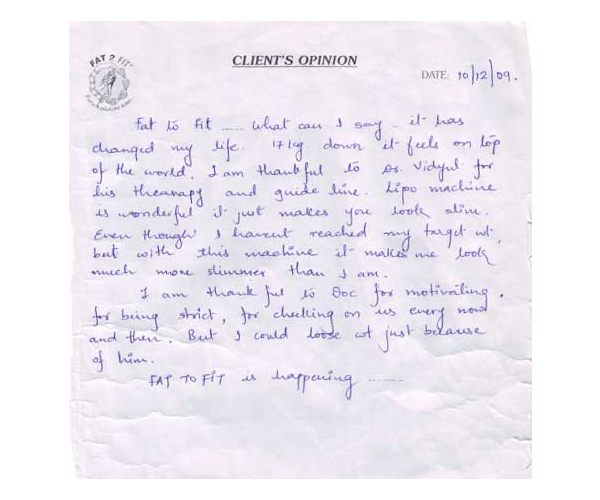 FAT 2 FIT
CLIENT'S OPINION
DATE: 10/12/09.
Fat to Fit ...... What can I say - it has
changed my life. 17 kg down it feels on top
of the world. I am thankful to Dr. Vidyut for
his theanapy and guide line. Lipo machine
is wonderful it just makes you look slim.
Even though I havent reached my target wt.
but with this machine it makes me look
much more slimmer than I am.
I am thankful to Doc for motivating,
for being strict, for checking on us every now
and then. But I could loose wt just because
of him.
FAT TO FIT is happening ........